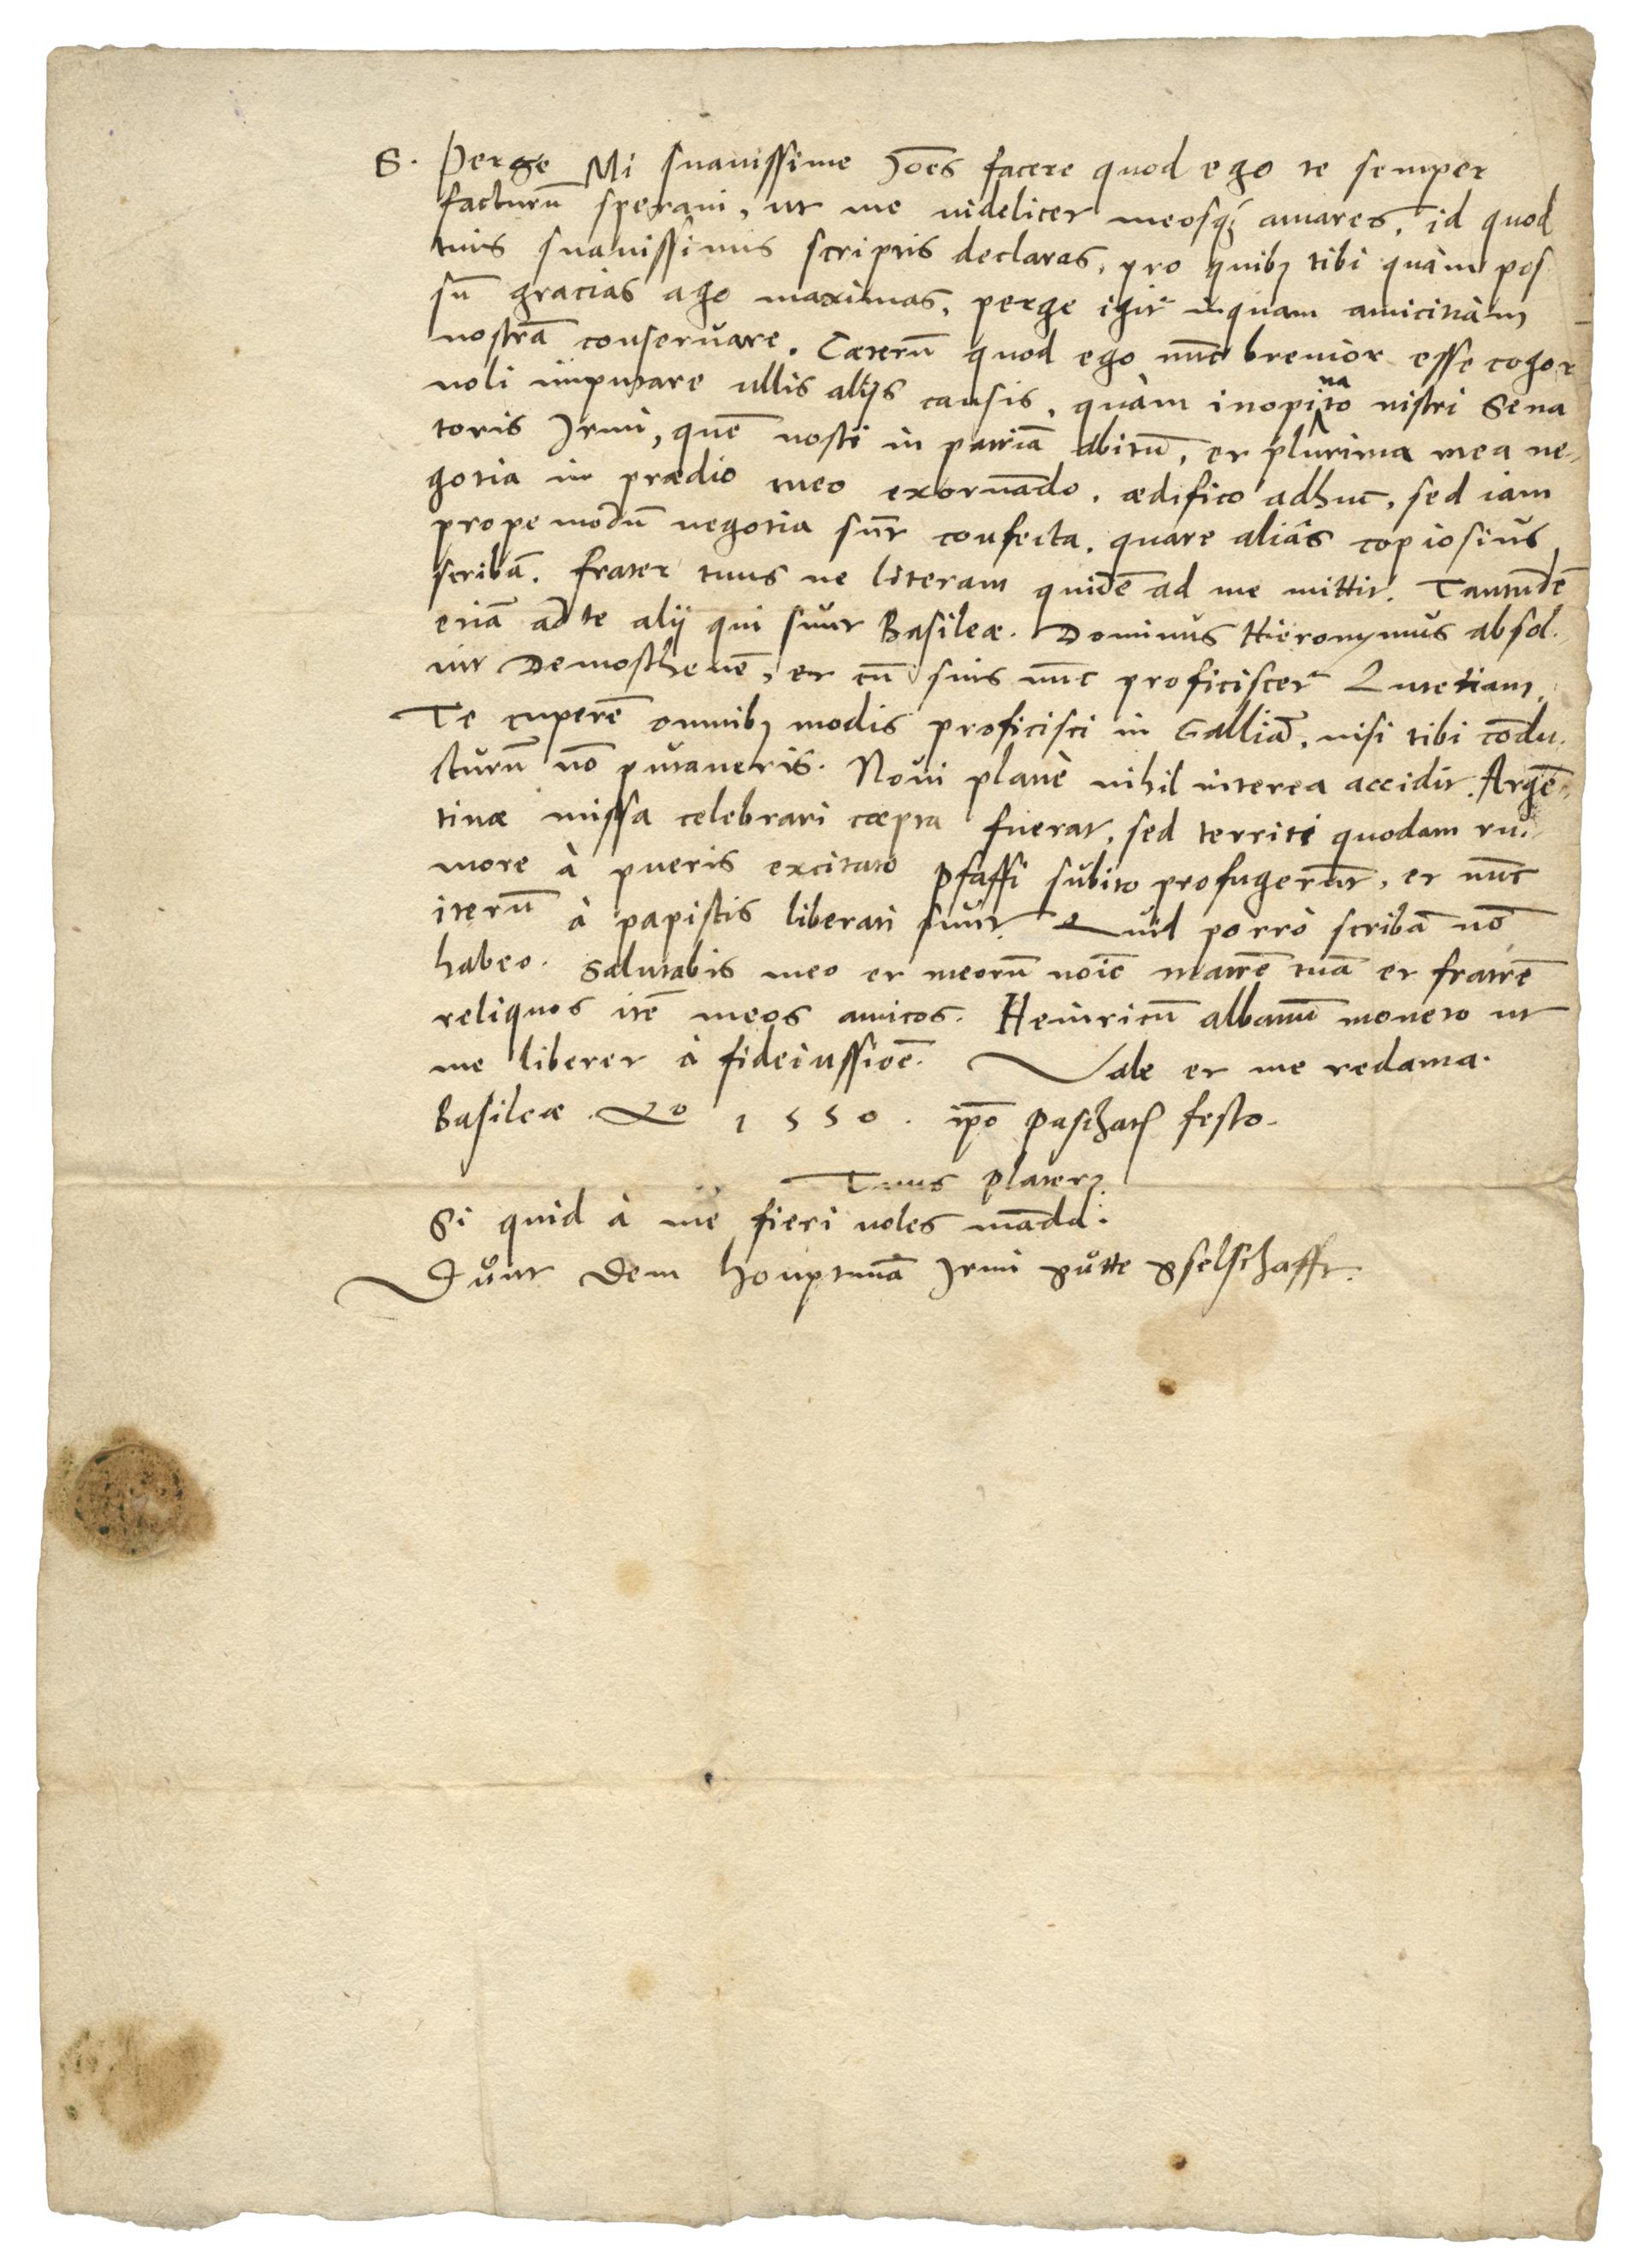 S. Perge Mi suauissime Jões facere quod ego te semper
facturũ speraui, ut me uidelicet meosq́ amares, id quod
tuis suauissimis scriptis declaras, pro quibꝫ tibi quàm pos
sũ gracias ago maximas, perge igit᷑ inquam amicitiam
nostrã conseruare. Cæterũ quod ego nũc breuior esse cogor
noli imputare ullis alijs causis, quàm inopinato nistri Sena
toris Irmi, quẽ nosti in patriã abitũ, et plurima mea ne-
gotia in prædio meo exornãdo. ædifico adhuc, sed iam
propemodũ negotia sũt confecta. quare aliàs copiosius
scribã. frater tuus ne literam quidẽ ad me mittit. Tantũdẽ
etiã ad te alij qui sunt Basileæ. Dominus Hieronymus absol-
uit Demosthenẽ, et cũ suis nũc proficiscet᷑ Lutetiam.
Te cuperẽ omnibꝫ modis proficisci in Galliã, nisi tibi cõdu-
cturũ nõ putaueris. Noui planè nihil interea accidit. Argẽ-
tinæ missa celebrari cœpta fuerat, sed territi quodam ru-
more à pueris excitato Pfaffi subito profugerũt, et nũc
iterũ à papistis liberati sunt. Quid porrò scribã nõ
habeo. Salutabis meo et meorũ noĩe matrẽ tuã et fratrẽ
reliquos itẽ meos amicos. Heinricũ albanũ moneto ut
me liberet à fideiussiõe. Vale et me redama.
Basileæ. Ao 1550. ip̃o Paschatꝭ festo.
Tuus Platerꝰ.
Si quid à me fieri uoles mãda.
Důnt dem houptmã Irmi gůtte gselschafft.